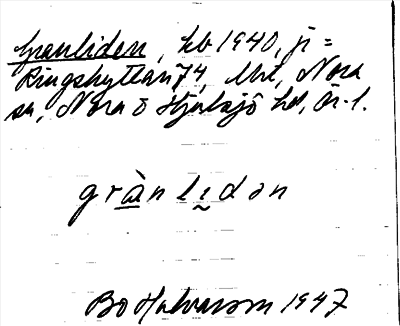 Granliden, kb 1940, ji =
Ringshyttan 7⁴, Uht, Nora
sn, Nora o Hjulsjö hd, Ör. l.
gràn lı̰dən
Bo Halvarson 1947